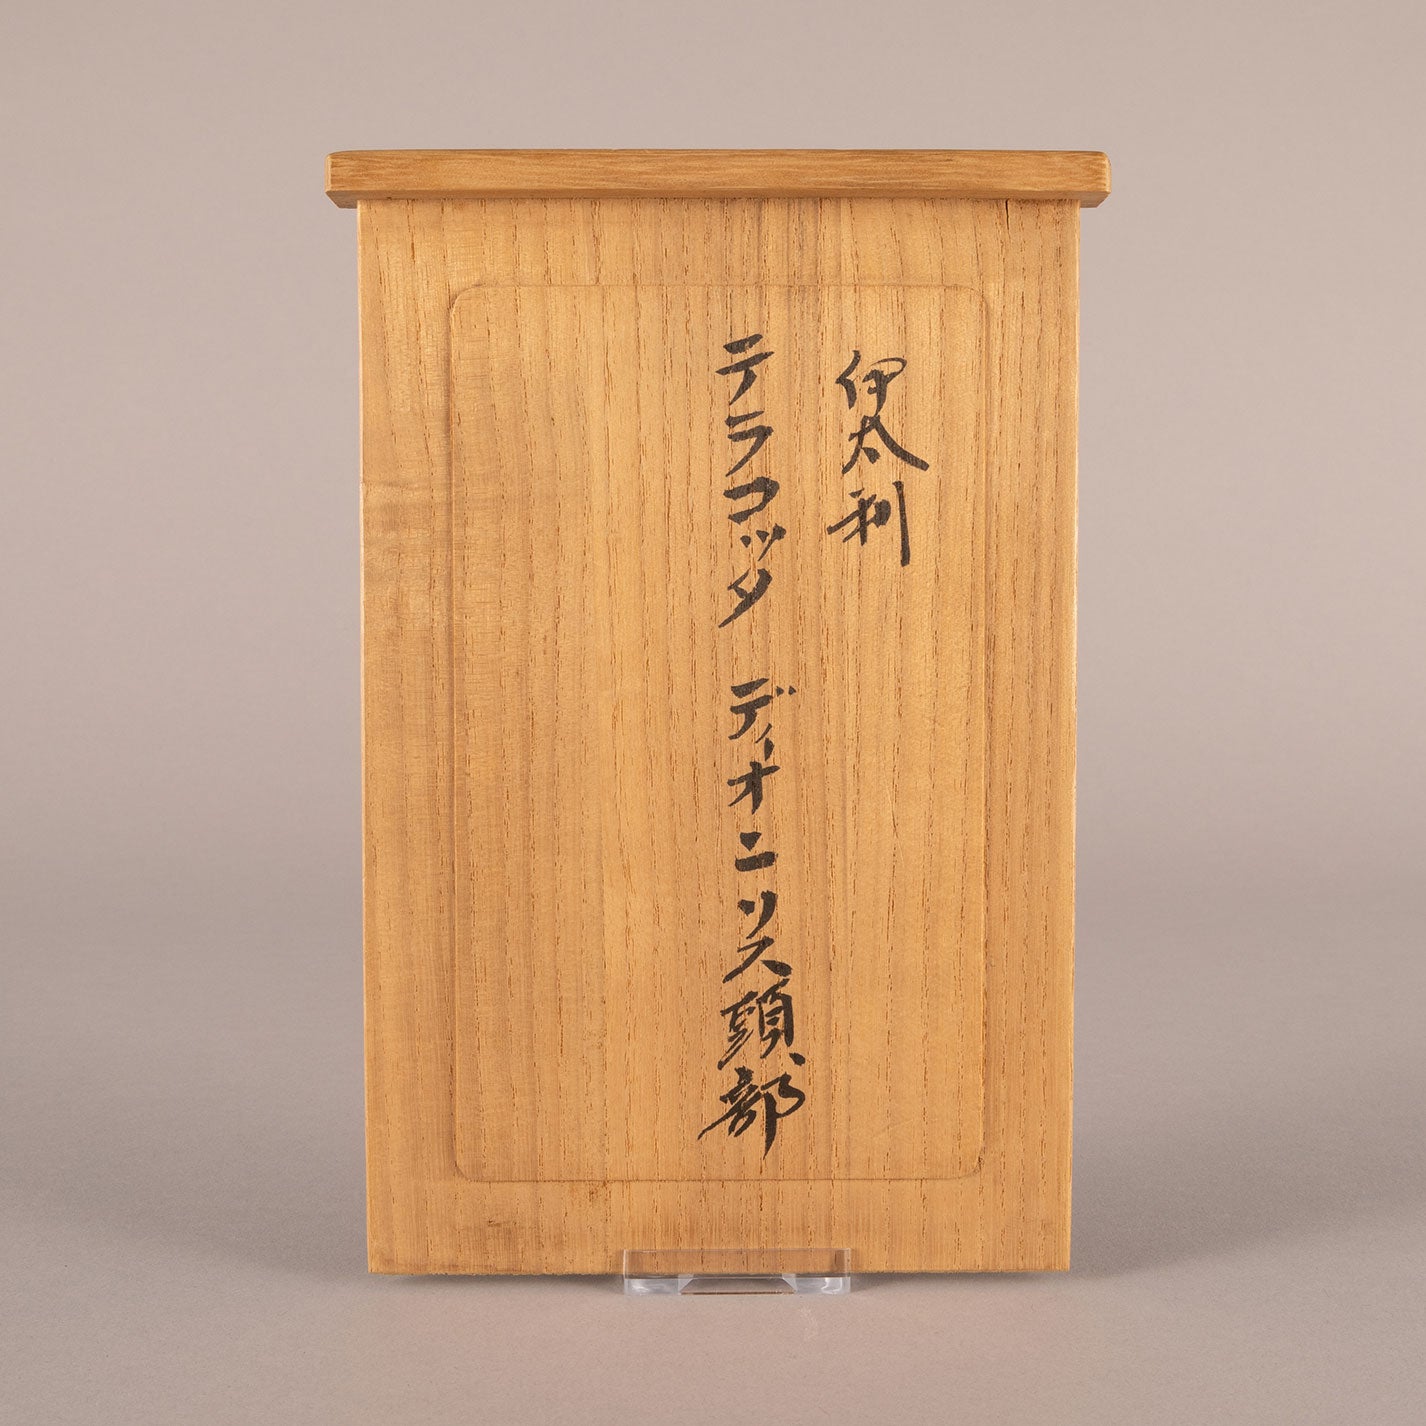 伊太利
テラコッタ ディオニソス頭部